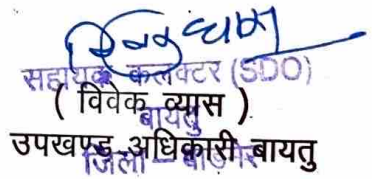 सहायक कलक्टर (SDO)
( विवेक व्यास )
बायतु
उपखण्ड अधिकारी बायतु
जिला - बाड़मेर